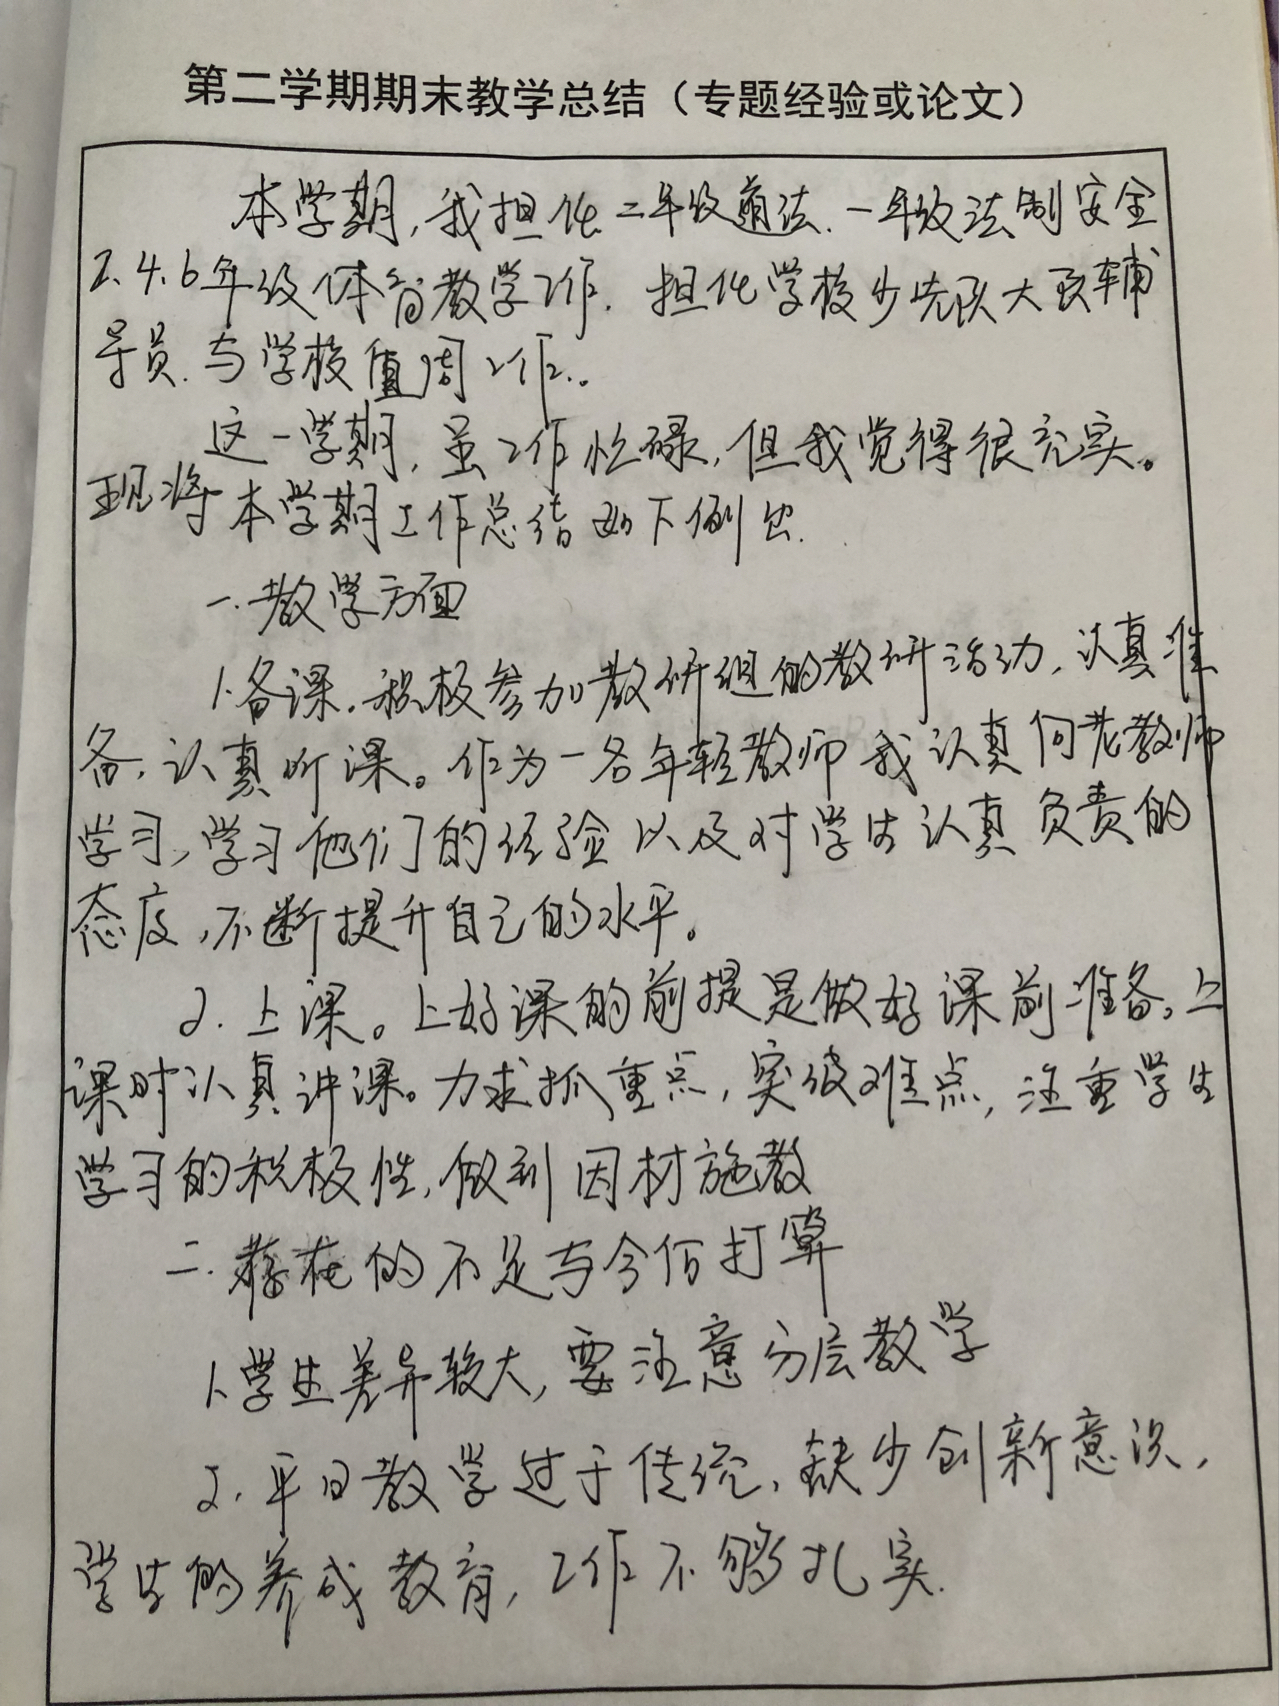 第二学期期末教学总结（专题经验或论文）
本学期，我担任二年级道法、一年级法制安全
2.4.6年级体育教学工作.担任学校少先队大队辅
导员.与学校值周工作..
这一学期，虽工作忙碌，但我觉得很充实。
现将本学期工作总结如下例出.
一.教学方面
1.备课.积极参加教研组的教研活动，认真准
备，认真听课。作为一名年轻教师我认真向老教师
学习，学习他们的经验以及对学生认真负责的
态度，不断提升自己的水平。
2.上课。上好课的前提是做好课前准备。上
课时认真讲课。力求抓重点，突破难点，注重学生
学习的积极性，做到因材施教
二.存在的不足与今后打算
1.学生差异较大，要注意分层教学
2.平日教学过于传统，缺少创新意识，
学生的养成教育，工作不够扎实.